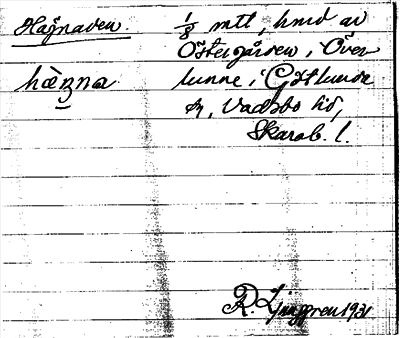 Hagnaden. 1/8 mtl, hmd av
Östergården, Över
hæʒna lunne i Götlunda
sn, Vadsbo hd,
Skarab. l.
R. Ljunggren 1931